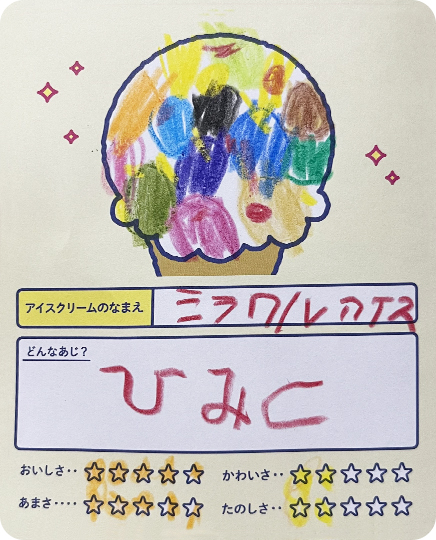 アイスクリームのなまえ ミラクルアイス
どんなあじ?
ひみつ
おいしさ‥ ☆☆☆☆☆ かわいさ‥ ☆☆☆☆☆
あまさ‥‥ ☆☆☆☆☆ たのしさ‥ ☆☆☆☆☆